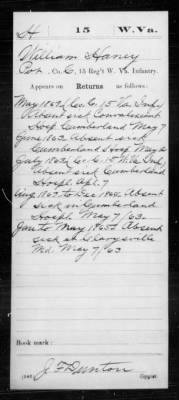 H 15 W.Va.
William Haney
Co. C, 15 Reg't W. Va. Infantry.
Appears on
Returns as follows:
May 1863 Co. C. 15 Va Inf.
Absent sick Convalescent
Hosp Cumberland May 7
June 1863 Absent sick
Cumberland Hosp May
July 1863 Co. C. 15 W.Va. Inf.
Absent sick Cumberland
Hospl. Apl. 7
Aug 1863 to Dec 1864 Absent
Sick in Cumberland
Hospl May 7/63.
Jan to May 1865 Absent
sick at Clarysville
Md. May 7/63
Book mark:
J F Dunton
Copyist.